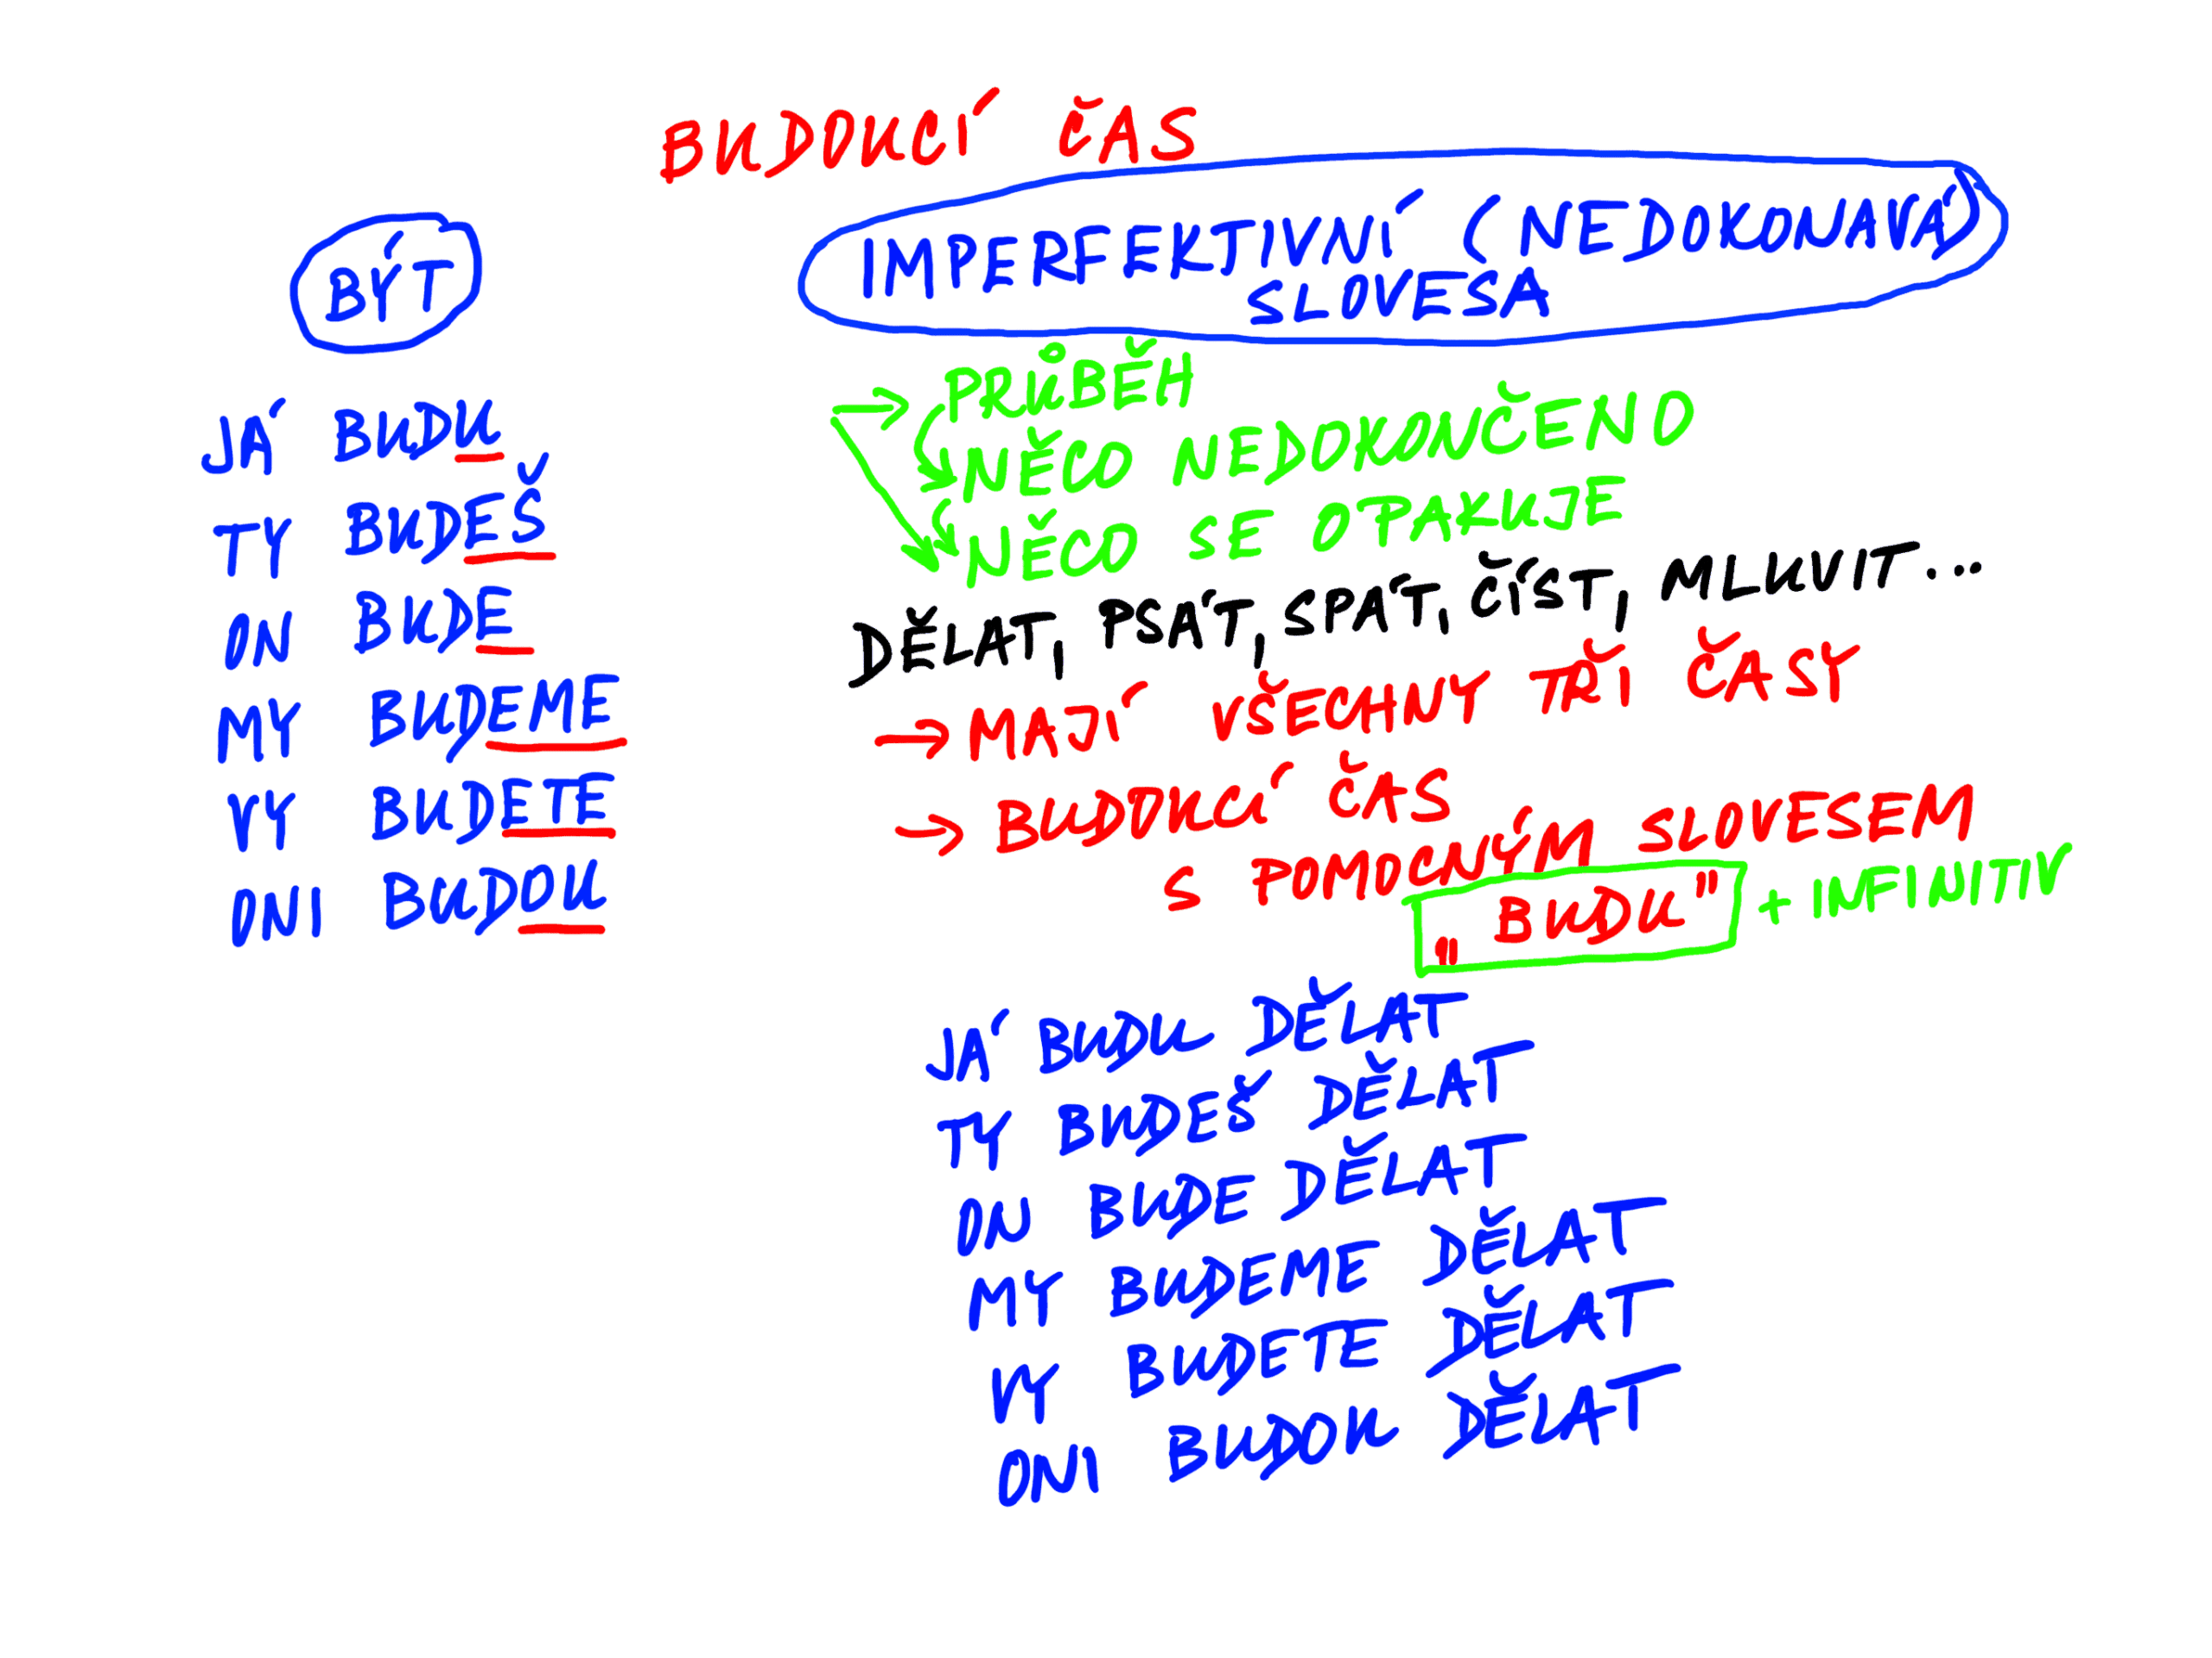 BUDOUCÍ ČAS
BÝT
JÁ BUDU
TY BUDEŠ
ON BUDE
MY BUDEME
VY BUDETE
ONI BUDOU
IMPERFEKTIVNÍ (NEDOKONAVÁ)
SLOVESA
→ PRŮBĚH
NĚCO NEDOKONČENO
NĚCO SE OPAKUJE
DĚLAT, PSÁT, SPÁT, ČÍST, MLUVIT...
→ MAJÍ VŠECHNY TŘI ČASY
→ BUDOUCÍ ČAS
S POMOCNÝM SLOVESEM
„BUDU" + INFINITIV
JÁ BUDU DĚLAT
TY BUDEŠ DĚLAT
ON BUDE DĚLAT
MY BUDEME DĚLAT
VY BUDETE DĚLAT
ONI BUDOU DĚLAT